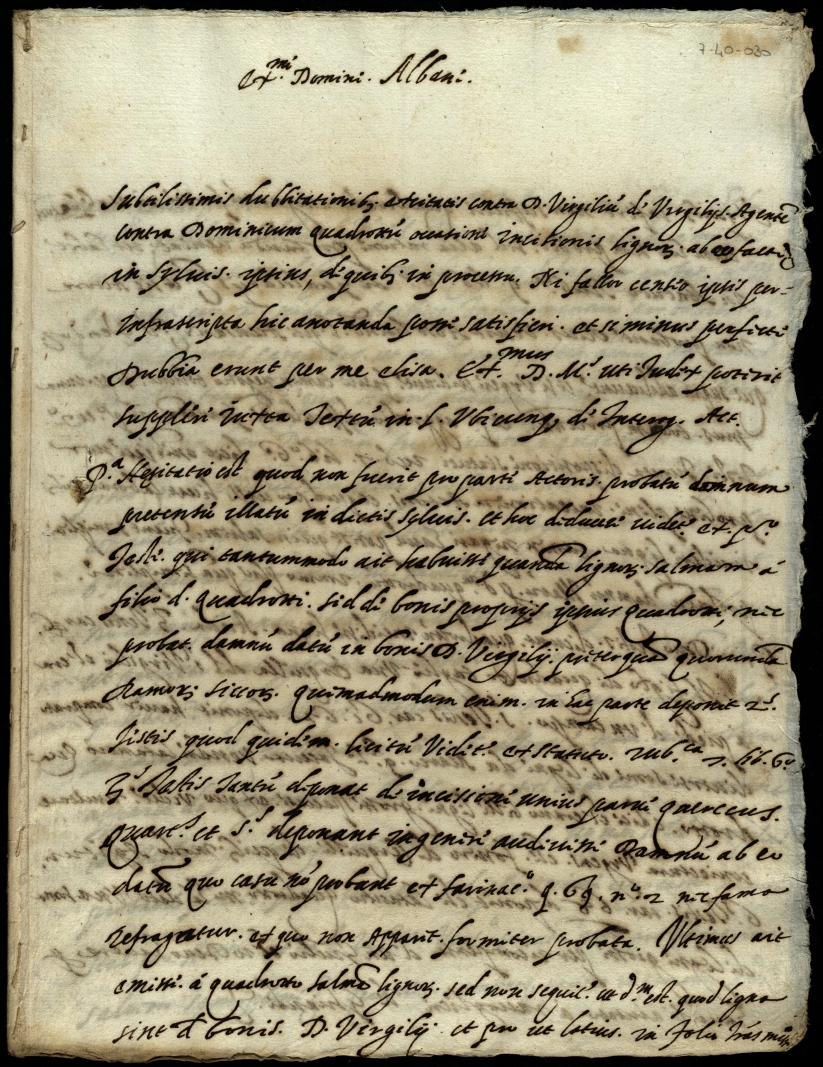 7-40-030
Ex.mi Domini. Albani.
Subtilissimis dubbitationib; excitatis contra D. Virgiliũ de Virgilijs Agentẽ
contra Dominicum quadrottũ occasione incisionis lignor; ab eo factę
in sylvis. ipsius, de quib; in processu. Ni fallor censeo ipsis per-
infrascripta hic anotanda posse satisfieri. et si minus perfecte
Dubbia erunt per me elisa. Ex.mus D. M.s uti Iudex poterit
supplere iuxta Textũ in l. Ubicunq; de Interog. Act.
P.a Hesitatio est quod non fuerit pro parte Actoris. probatũ damnum
pretensũ illatũ in dictis sylvis. et hoc deducere videt.r ex p.o
Teste. qui tantummodo ait habuisse quandã lignor; salmam á
filio d. quadrotti. sed de bonis proprijs ipsius quadrotti, nec
probat. damnũ datũ in bonis D. Virgilij. preterquã quorundã
Ramor; siccor; quemadmodum enim. in hac parte deponit 2.s
Testis quod quidem. licitũ videt.r ex statuto. rub.ca
3.s Testis tantũ deponat de incissione unius parve quercus.
Quart.s et 5.s deponant in genere audivisse Damnũ ab eo
datũ quo casu nõ probant ex farinac.o q. 69. n.o 2 nec fama
refragatur. ex quo non Apparet. formiter probata. Ultimus ait
emisse. á quadrotto salmã lignor; sed non sequit.r et d.m est. quod ligna
sint de bonis. D. Virgilij et pro ut latius. in folio